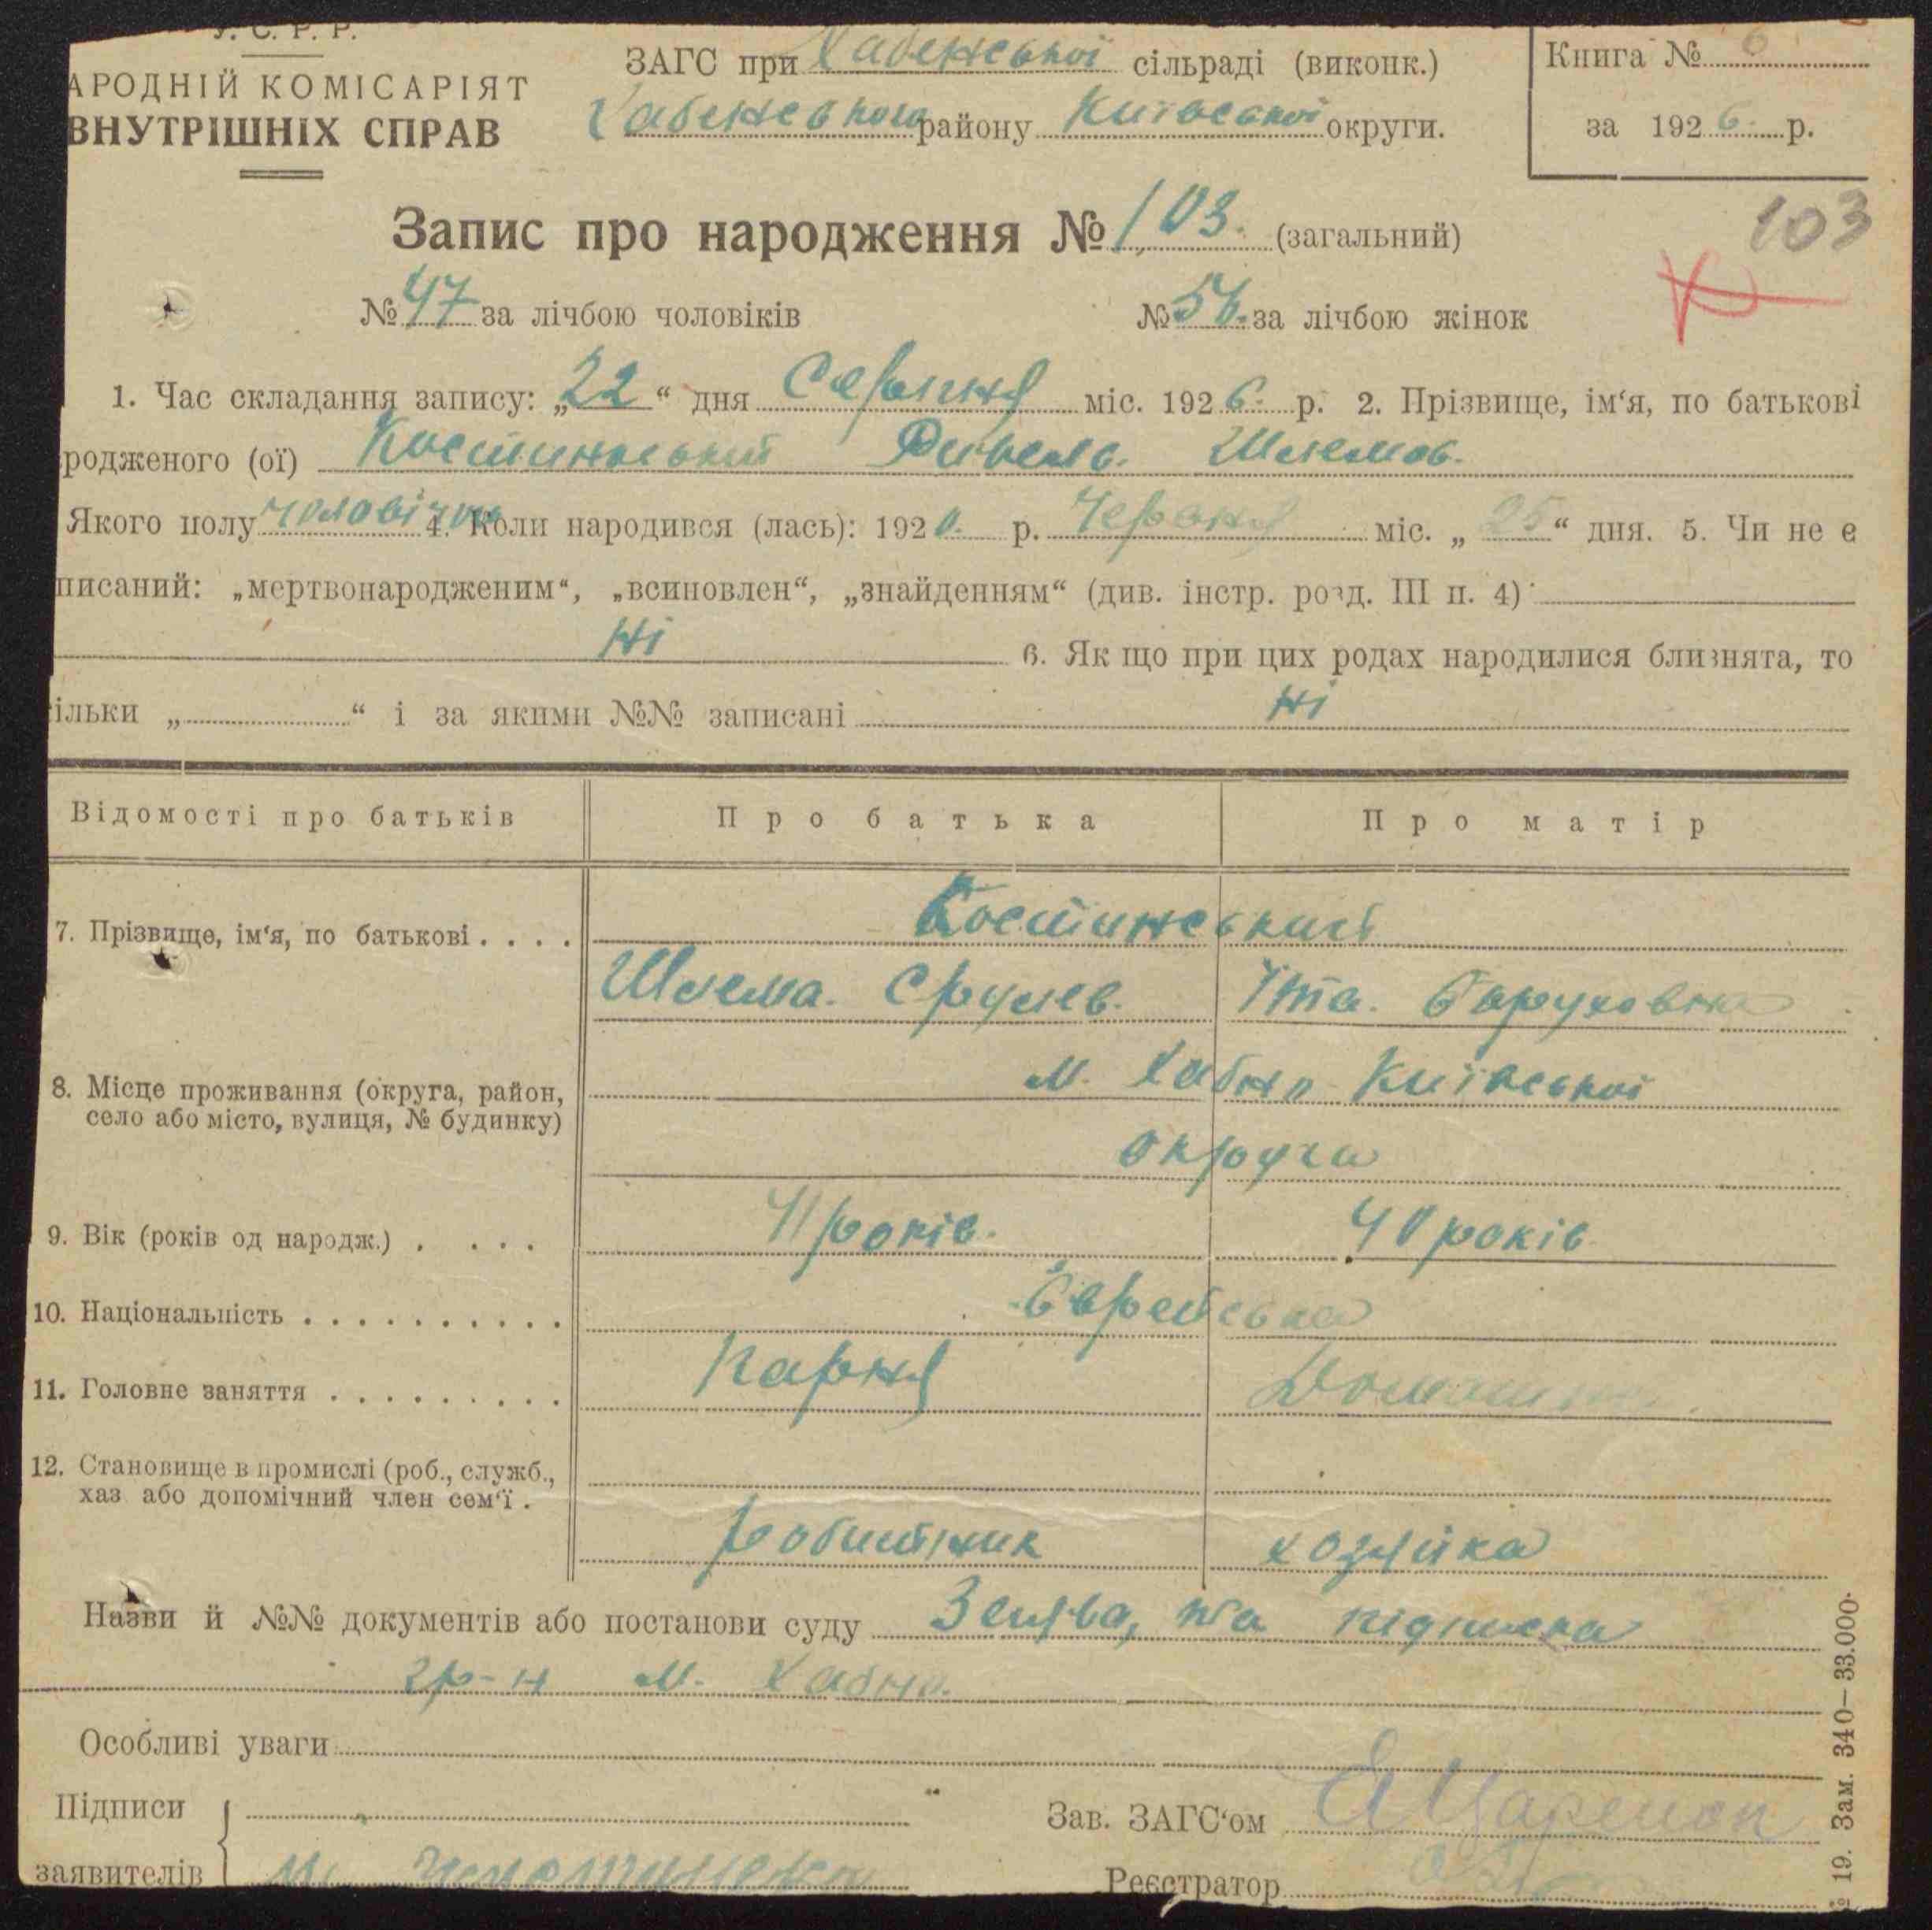 У. С. Р. Р.
АРОДНІЙ КОМІСАРІЯТ
ВНУТРІШНІХ СПРАВ
ЗАГС при Хабенської сільраді (виконк.)
Хабенського району Київської округи.
Книга № 6
за 1926 р.
Запис про народження № 103. (загальний)
103
№ 47 за лічбою чоловіків № 56. за лічбою жінок
1. Час складання запису: „22“ дня Серпня міс. 1926. р. 2. Прізвище, ім‘я, по батькові
родженого (ої) Костинський Шлемов.
Якого полу чоловічого 4. Коли народився (лась): 1920. р. Червня міс. „25“ дня. 5. Чи не є
писаний: „мертвонародженим“, „всиновлен“, „знайденням“ (див. інстр. розд. III п. 4)
Ні 6. Як що при цих родах народилися близнята, то
ільки „ “ і за якими №№ записані Ні
Відомості про батьків Про батька Про матір
7. Прізвище, ім‘я, по батькові . . . . Костинський
Шлема. Срулев. Їта. Баруховна
8. Місце проживання (округа, район, м. Хабно Київської
село або місто, вулиця, № будинку)
округа
9. Вік (років од народж.) . . . . 41 років. 40 років
10. Національність . . . . . . . . . . Єврейська
11. Головне заняття . . . . . . . . . Домашня
12. Становище в промислі (роб., служб.,
хаз або допомічний член сем‘ї .
робитник хозяйка
Назви й №№ документів або постанови суду Заява, та підписка
гр-н м. Хабно.
Особливі уваги
Підписи
заявителів
Зав. ЗАГС‘ом
Реєстратор
№ 19. Зам. 340—33.000.